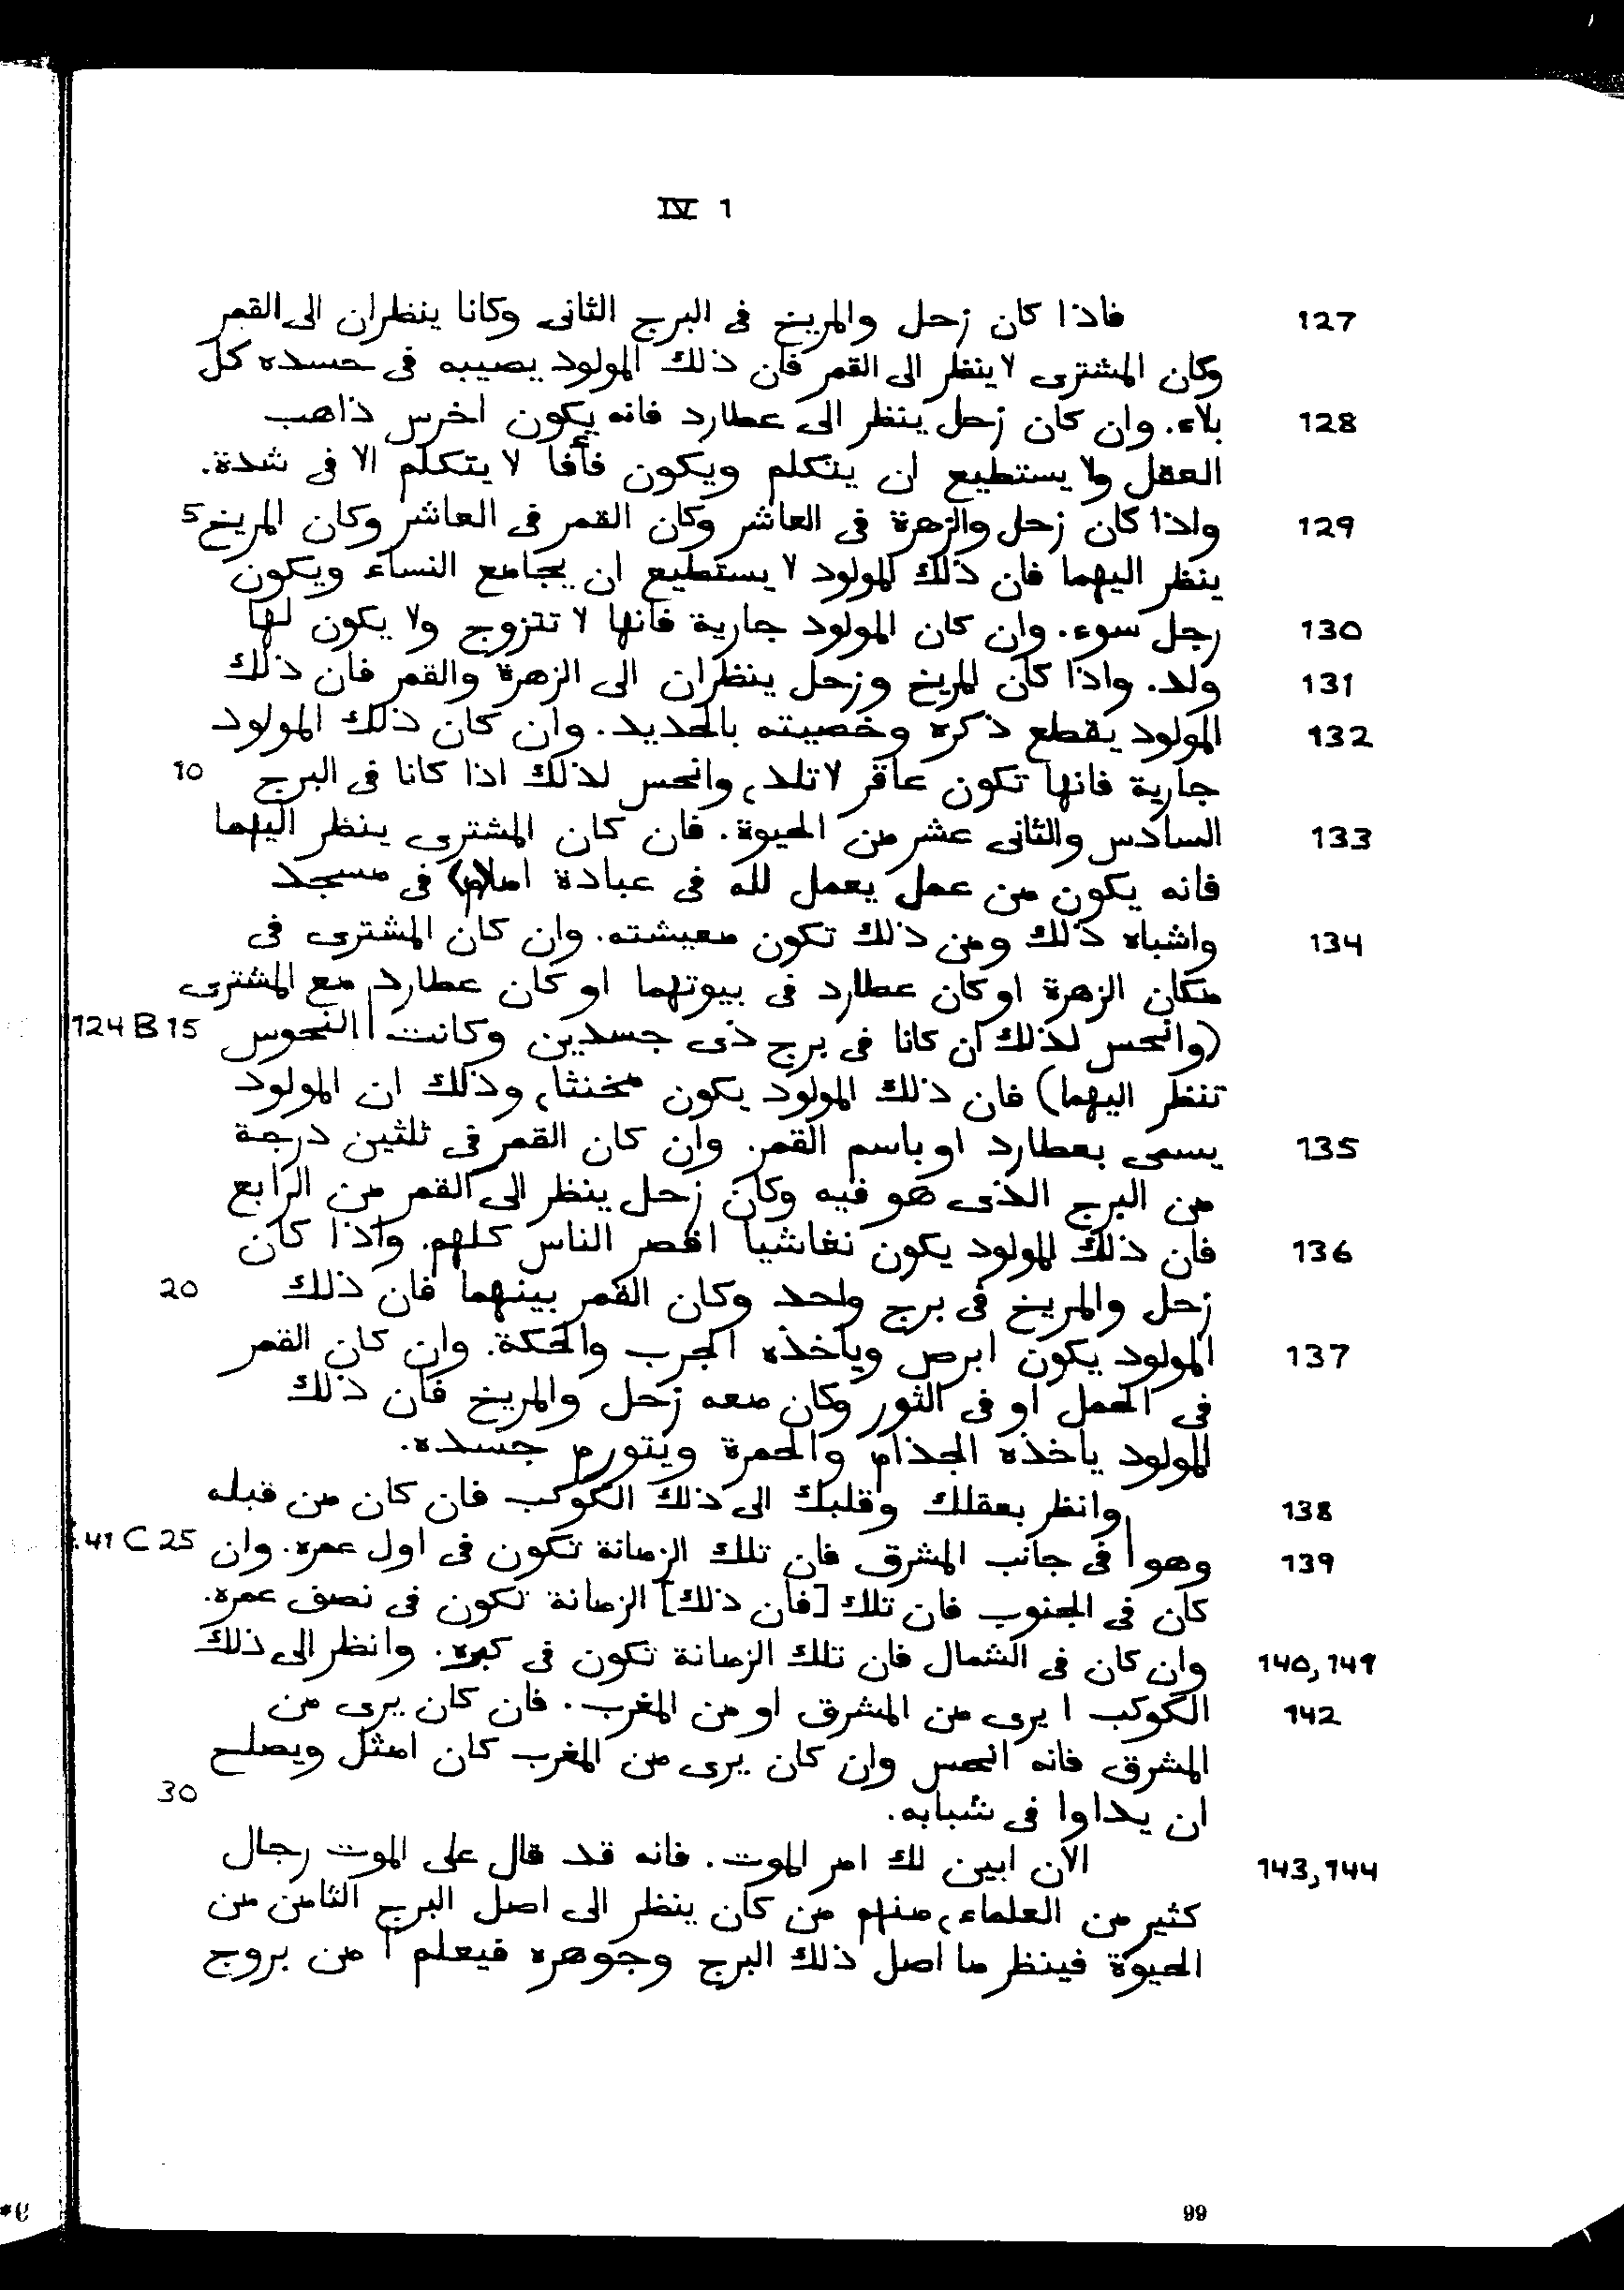 IV 1
127 فاذا كان زحل والمريخ فى البرج الثانى وكانا ينظران الى القمر
وكان المشترى لا ينظر الى القمر فان ذلك المولود يصيبه فى حسده كل
128 بلاء. وان كان زحل ينظر الى عطارد فانه يكون اخرس ذاهب
العقل ولا يستطيع ان يتكلم ويكون فأفأ لا يتكلم الا فى شدة.
129 واذا كان زحل والزهرة فى العاشر وكان القمر فى العاشر وكان المريخ 5
ينظر اليهما فان ذلك المولود لا يستطيع ان يجامع النساء ويكون
130 رجل سوء. وان كان المولود جارية فانها لا تتزوج ولا يكون لها
131 ولد. واذا كان المريخ وزحل ينظران الى الزهرة والقمر فان ذلك
132 المولود يقطع ذكره وخصيته بالحديد. وان كان ذلك المولود
جارية فانها تكون عاقر لا تلد، وانحس لذلك اذا كانا فى البرج 10
133 السادس والثانى عشر من الحيوة. فان كان المشترى ينظر اليهما
فانه يكون من عمل يعمل لله فى عبادة اما(م) فى مسجد
134 واشباه ذلك ومن ذلك تكون معيشته. وان كان المشترى فى
مكان الزهرة او كان عطارد فى بيوتهما او كان عطارد مع المشترى
(وانحس لذلك ان كانا فى برج ذى جسدين وكانت | النحوس 124 B 15
تنظر اليهما) فان ذلك المولود يكون مخنثا، وذلك ان المولود
135 يسمى بعطارد او باسم القمر. وان كان القمر فى ثلثين درجة
من البرج الذى هو فيه وكان زحل ينظر الى القمر من الرابع
136 فان ذلك المولود يكون نغاشيا اقصر الناس كلهم. واذا كان
زحل والمريخ فى برج واحد وكان القمر بينهما فان ذلك 20
137 المولود يكون ابرص ويأخذه الجرب والحكة. وان كان القمر
فى الحمل او فى الثور وكان معه زحل والمريخ فان ذلك
المولود يأخذه الجذام والحمرة ويتورم جسده.
138 وانظر بعقلك وقلبك الى ذلك الكوكب فان كان من قبله
139 وهو | فى جانب المشرق فان تلك الزمانة تكون فى اول عمره. وان 41 C 25
كان فى الجنوب فان تلك [فان ذلك] الزمانة تكون فى نصف عمره.
140,141 وان كان فى الشمال فان تلك الزمانة تكون فى كبره. وانظر الى ذلك
142 الكوكب ا يرى من المشرق او من المغرب. فان كان يرى من
المشرق فانه انحس وان كان يرى من المغرب كان امثل ويصلح
ان يداوا فى شبابه. 30
143,144 الآن ابين لك امر الموت. فانه قد قال على الموت رجال
كثير من العلماء، منهم من كان ينظر الى اصل البرج الثامن من
الحيوة فينظر ما اصل ذلك البرج وجوهره فيعلم أ من بروج
99